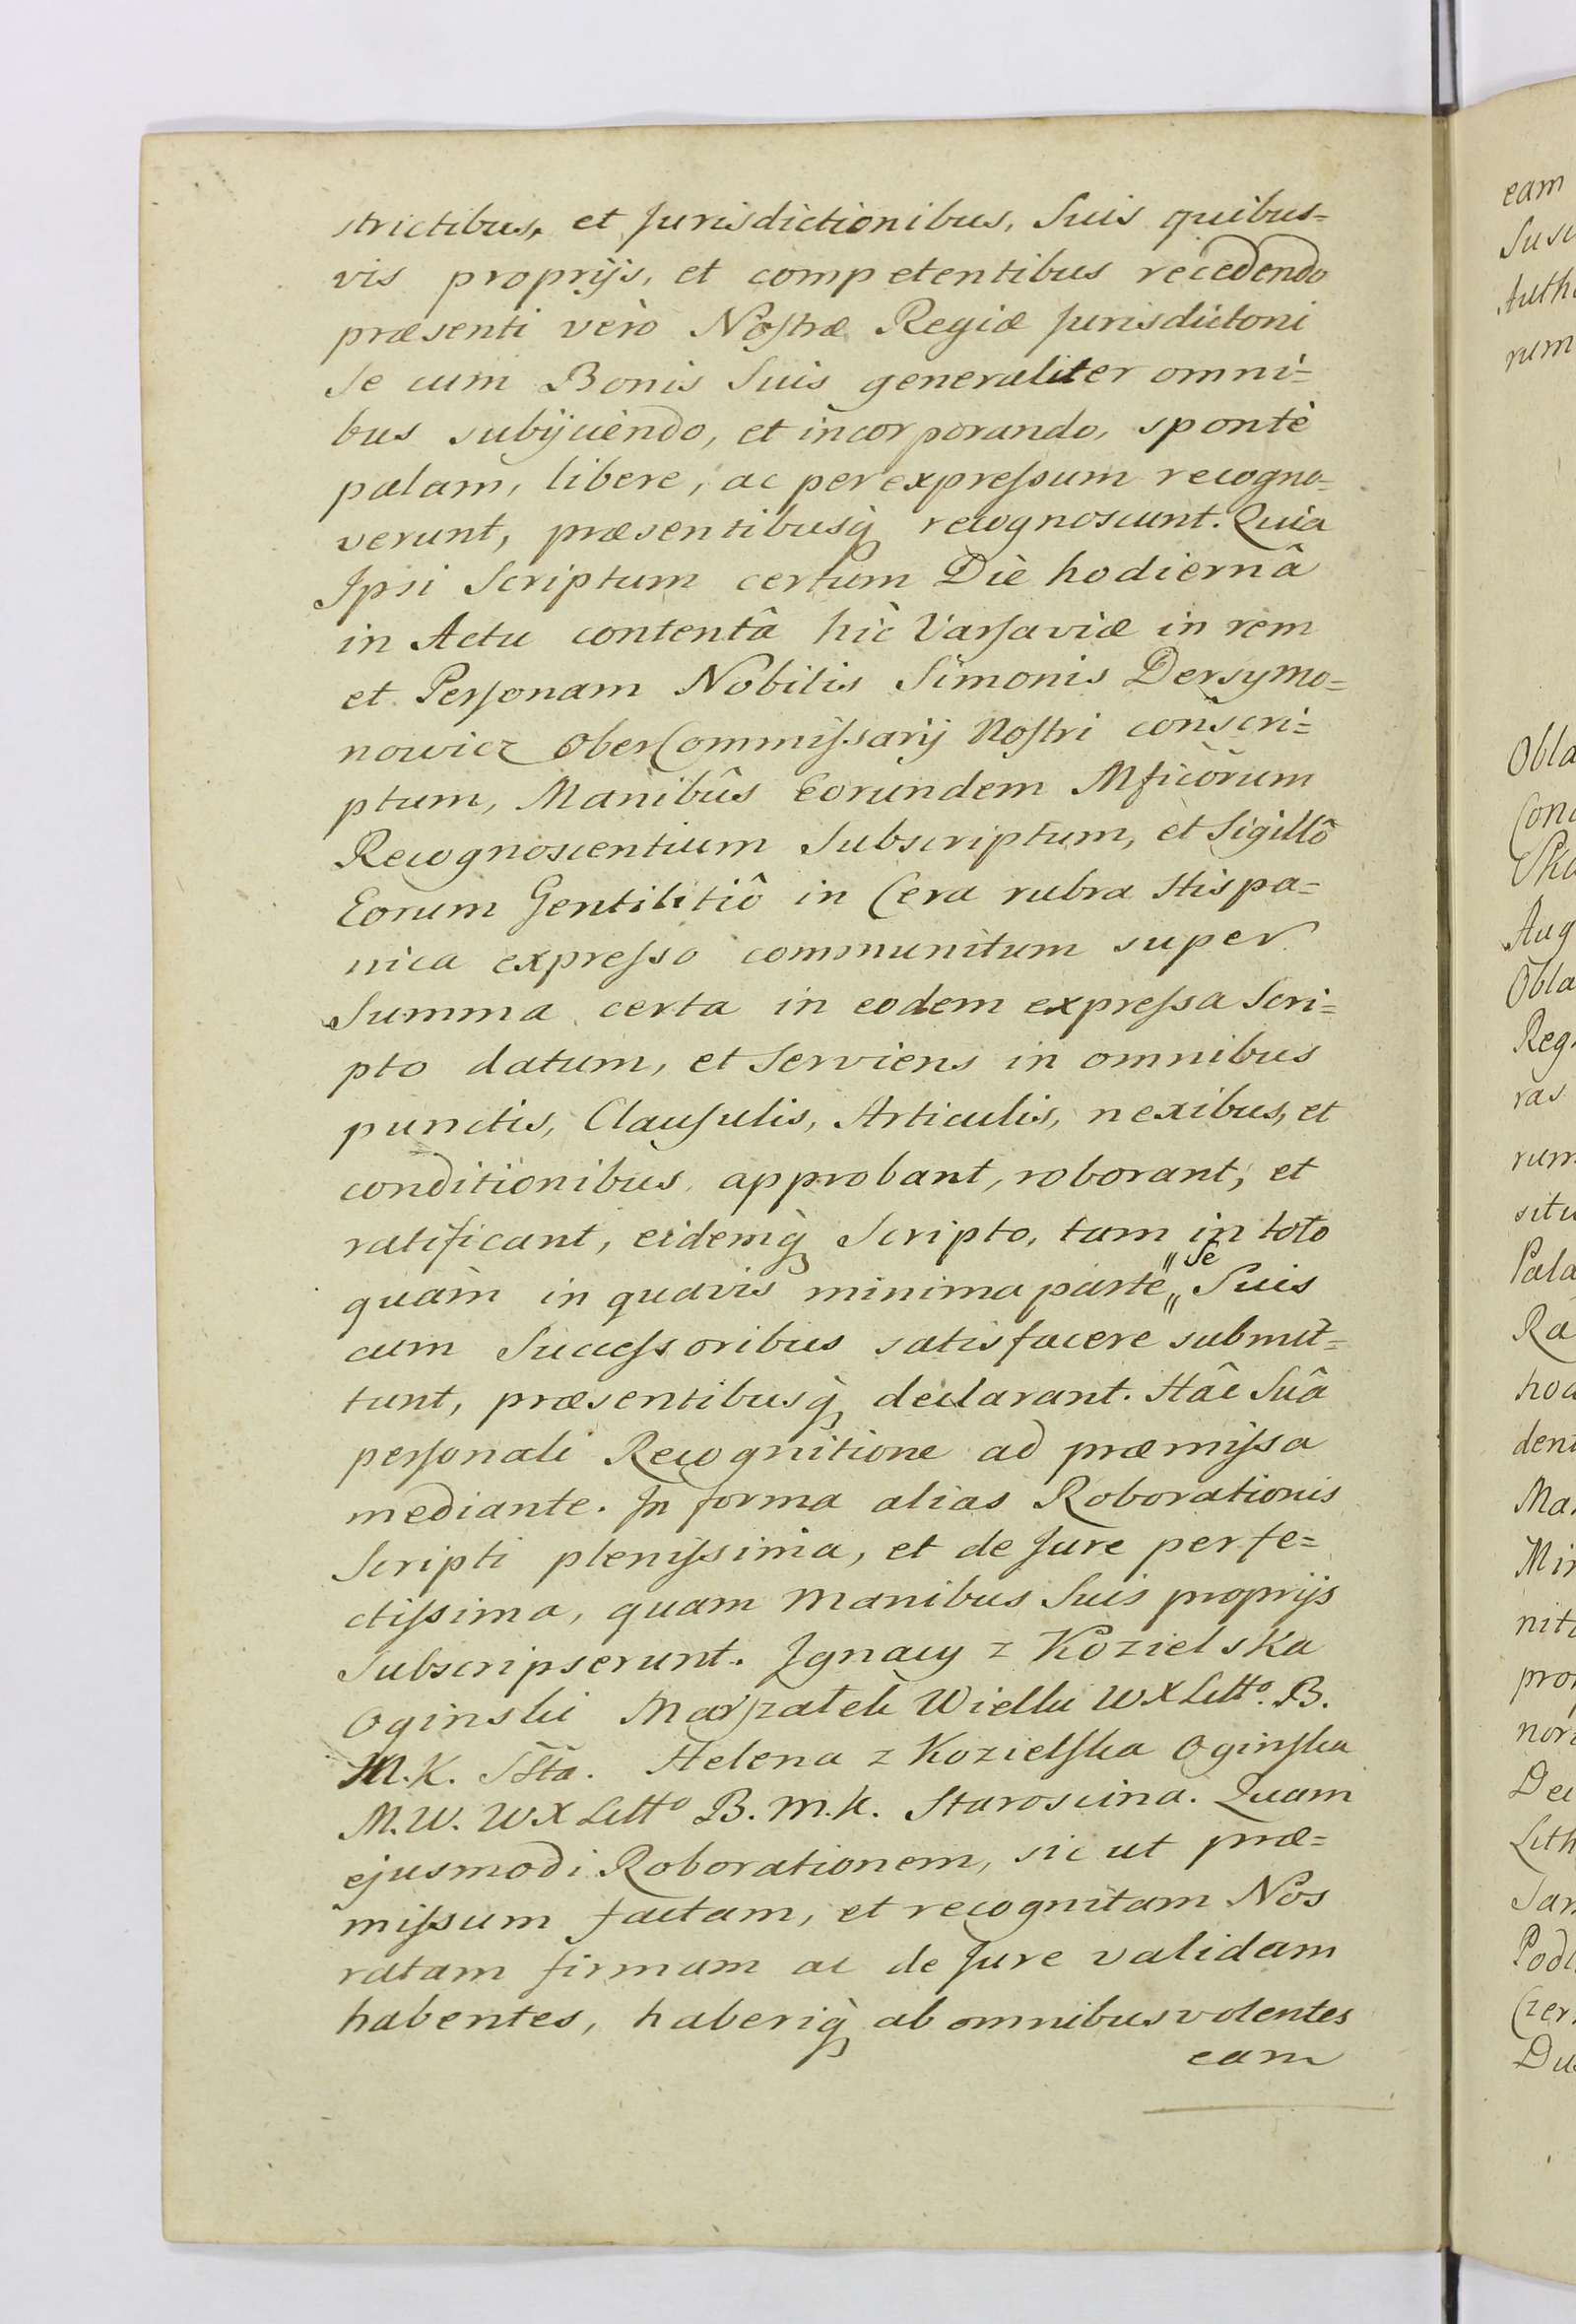 strictibus, et Jurisdictionibus, Suis quibus=
vis proprijs, et competentibus recedendo
præsenti verò Nostræ Regiæ Jurisdictoni
Se cum Bonis Suis generaliter omni=
bus subijciendo, et incorporando, spontè
palam, libere, ac per expressum recogno=
verunt, præsentibusq̀ recognoscunt. Quia
Ipsi Scriptum certum Diè hodiernâ
in Actu contentâ hìc Varsaviæ in rem
et Personam Nobilis Simonis Dersymo=
nowicz OberCommissarij Nostri conscri=
ptum, Manibûs Eorundem Mficorum
Recognoscentium Subscriptum, et Sigillô
Eorum Gentilitiô in Cera rubra Hispa=
nica expresso communitum super
Summa certa in eodem expressa Scri=
pto datum, et Serviens in omnibus
punctis, Clausulis, Articulis, nexibus, et
conditionibus approbant, roborant, et
ratificant, eidemq̀ Scripto, tam in toto
quàm in quavis minima parte „ Se „ Suis
cum Successoribus satisfacere submit=
tunt, præsentibusq̀ declarant. Hâc Suâ
personali Recognitione ad præmissa
mediante. In forma alias Roborationis
Scripti plenissima, et de Jure perfe=
ctissima, quam Manibus Suis proprijs
Subscripserunt. Ignacy z Kozielska
Oginski Marszałek Wielki WXLitto. B.
M.K. Stta. Helena z Kozielska Oginska
M.W. WXLitto B.M.K. Staroscina. Quam
ejusmodi Roborationem, sic ut præ=
missum factam, et recognitam Nos
ratam firmam ac de Jure validam
habentes, haberiq̀ ab omnibus volentes
eam
eam
Obla
Aug
Obla
Reg
ras
rum
situ
Pala
Ra
Ma
nit
pro
nor
Lith
Pod
Czer